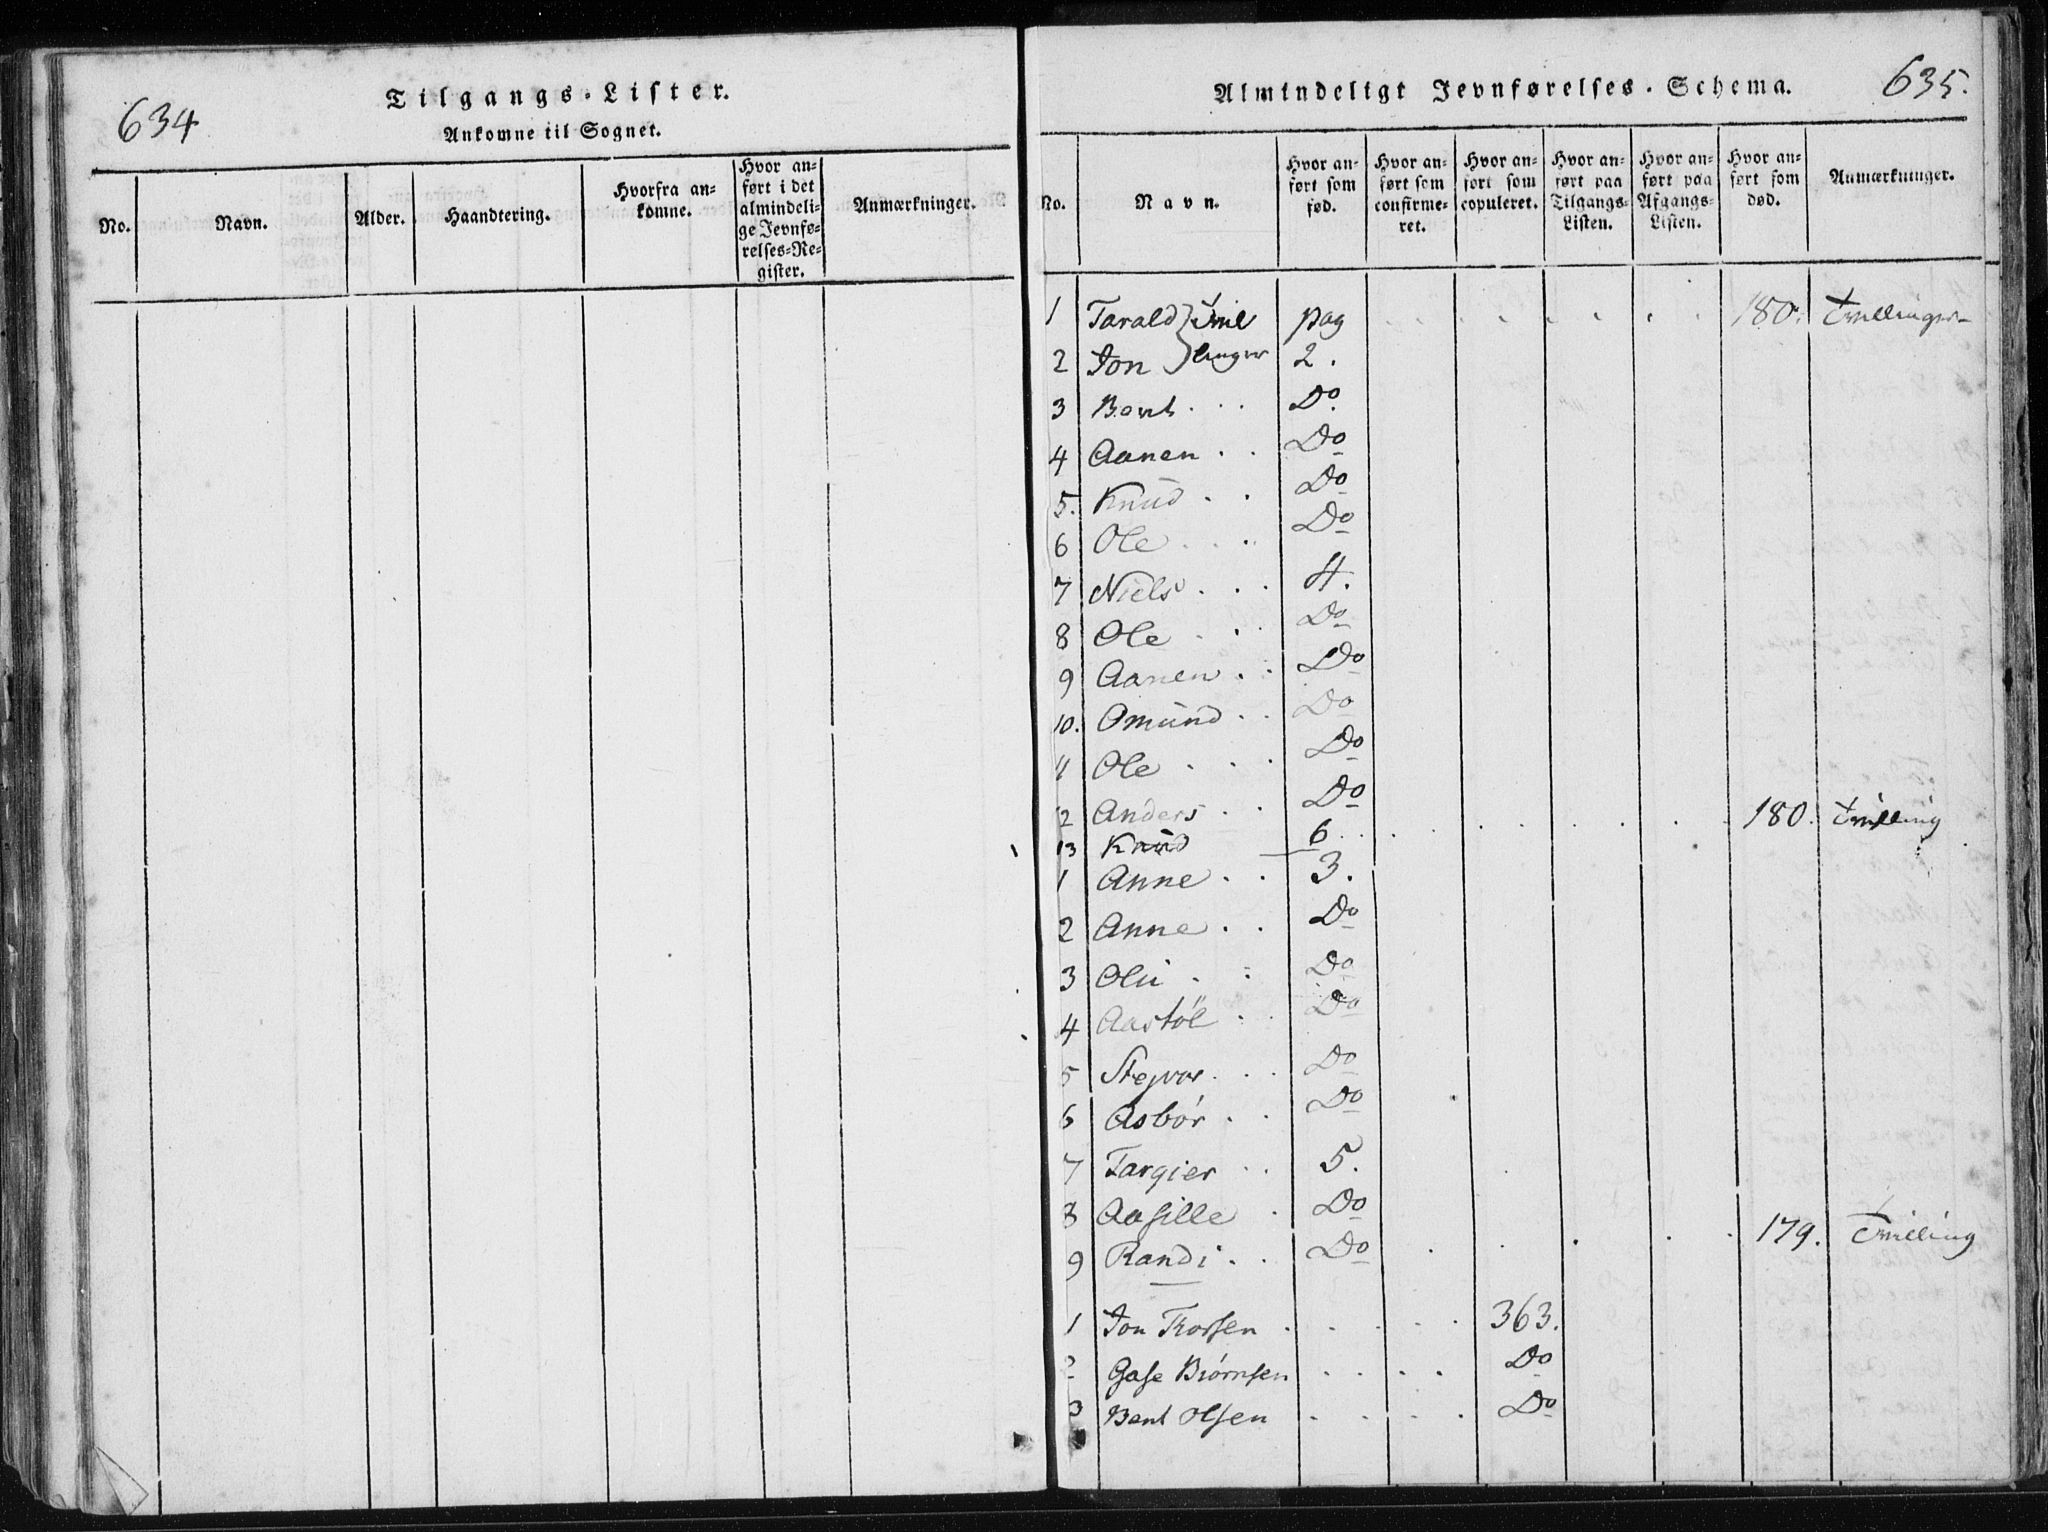 634
Tilgangs-Lister.
Ankomne til Sognet.
No. Navn. Alder. Haandtering. Hvorfra ankomne. Hvor anført i det almindelige Jevnførelses-Register. Anmærkninger.
635.
Almindeligt Jevnførelses-Schema.
No. Navn. Hvor anført som fød. Hvor anført som confirmeret. Hvor anført som copuleret. Hvor anført paa Tilgangs-Listen. Hvor anført paa Afgangs-Listen. Hvor anført som død. Anmærkninger.
1 Tarald } Tvil pag 180. Tvillinger
2 Jon } linger 2.
3 Bent Do
4 Aanen Do
5. Knud Do
6 Ole Do
7 Niels 4.
8 Ole Do
9 Aanen Do
10. Omund Do
11 Ole Do
12 Anders Do
13 Knud 6 180. Tvilling
1 Anne 3.
2 Anne Do
3 Oli Do
4 Aastöl Do
5 Stejvor Do
6 Asbör Do
7 Targier 5.
8 Aasille Do
9 Randi Do 179. Tvilling
1 Jon Torsen 363.
2 Gase Biörnsen Do
3 Bent Olsen Do